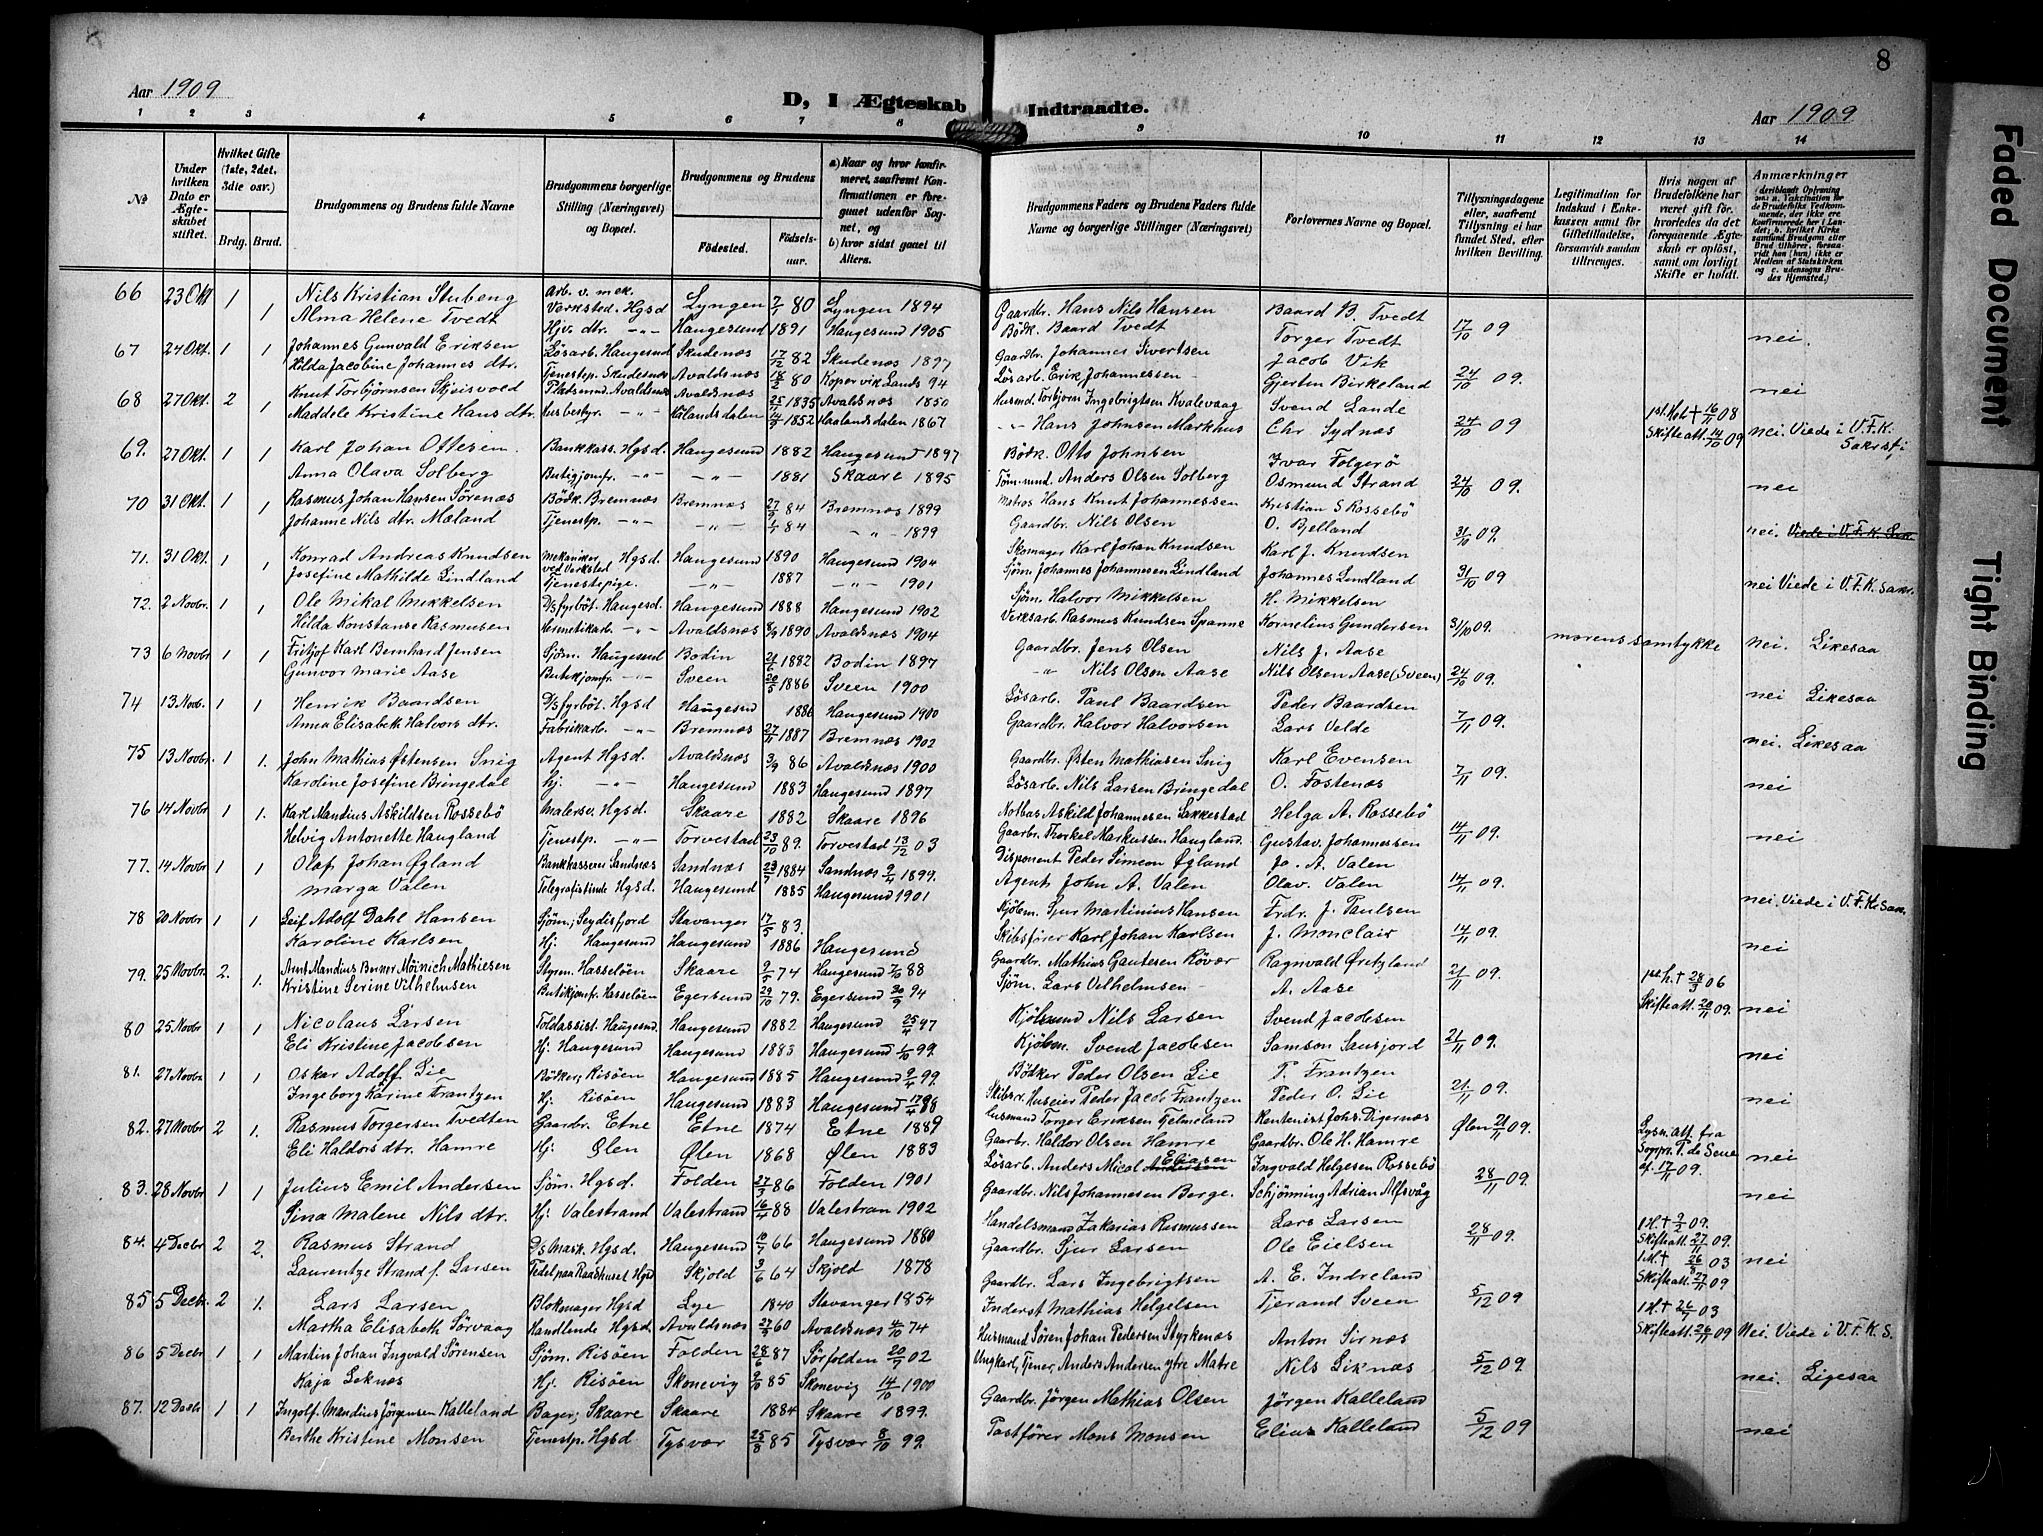 8
Aar 1909
D, I Ægteskab Indtraadte.
Aar 1909
8
1 2 3 4 5 6 7 8 9 10 11 12 13 14
№
Under hvilken Dato er Ægteskabet stiftet.
Hvilket Gifte (1ste, 2det, 3die osv.)
Brdg. Brud.
Brudgommens og Brudens fulde Navne
Brudgommens borgerlige Stilling (Næringsvei) og Bopæl.
Brudgommens og Brudens
Födested. Födselsaar.
a) Naar og hvor konfirmeret, saafremt Konfirmationen er foregaaet udenfor Sognet, og
b) hvor sidst gaaet til Alters.
Brudgommens Faders og Brudens Faders fulde Navne og borgerlige Stillinger (Næringsvei)
Forlovernes Navne og Bopæl.
Tillysningsdagene eller, saafremt Tillysning ei har fundet Sted, efter hvilken Bevilling.
Legitimation for Indskud i Enkekassen samt for Giftetilladelse, forsaavidt saadan tiltrænges.
Hvis nogen af Brudefolkene har været gift för, hvorledes da det foregaaende Ægteskab er oplöst, samt om lovligt Skifte er holdt.
Anmærkninger
66 23 Okt 1 Nils Kristian Stubeng Arb. v. mek. Verksted. Hgsd Lyngen 7/1 80 Lyngen 1894 Gaardbr. Hans Nils Hansen Baard B. Tvedt 17/10 09 nei.
1 Alma Helene Tvedt Hjv. dtr. -"- Haugesund 1891 Haugesund 1905 Bödk. Baard Tvedt Torger Tvedt
67 24 Okt. 1 1 Johannes Gunvald Eriksen Lösarb. Haugesund Skudenæs 17/2 82 Skudenæs 1897 Gaardbr. Johannes Sivertsen Jacob Vik 24/10 09. nei
Hilda Jacobine Johannes dtr. Tjenestp. Skudesnæs Avaldsnæs 18/2 80 Kopervik Lands 94 Lösarb. Erik Johannessen Gjerten Birkeland
68 27 Okt. 2 1 Knut Torbjörnsen Skjisvold Pladsmd. Avaldsnæs Avaldsnæs 25/11 1835 Avaldsnæs 1850 Husmd. Torbjorn Ingebrigtsen Kvalevaag Svend Lande 24/10 09 1st. Hot + 16/11 08 Skifteatt. 14/10 09 nei. Viede i V.F.K. Sakristi
Maddele Kristine Hans dtr. husbestyr. -"- Hålandsdalen 14/5 1852 Haalandsdalen 1867 -"- Hans Johnsen Markhus Chr Sydnæs
69. 27 Okt. 1 1 Karl Johan Ottesen. Bankkass. Hgsd. Haugesund 1882 Haugesund 1897 Bödk. Otto Johnsen Ivar Folgerö 24/10 09. nei
Anna Olava Solberg Butigjomfr. -"- -"- 1881 Skaare 1895 Töm.md. Anders Olsen Solberg Osmund Strand
70 31 Okt. 1 1 Rasmus Johan Hansen Sørenæs Bödk. Bremnæs Bremnæs 27/9 84 Bremnæs 1899 Matros Hans Knut Johannessen Kristian S Rossebö 31/10 09. nei. Viede i V.F.K. Sak.
Johanne Nils dtr. Mæland Tjenestp. -"- -"- 1/1 84 -"- 1899 Gaardbr. Nils Olsen O. Bjelland
71. 31 Okt. 1 1 Konrad Andreas Knudsen Mekaniker ved Verksted Hgsd Haugesund 1890 Haugesund 1904 Skomager Karl Johan Knudsen Karl J. Knudsen 31/10 09 nei Viede i V.F.K. Sakr.
Josefine Mathilde Lindland Tjenestepige. -"- 1887 -"- 1901 Sjöm. Johannes Johannesen Lindland Johannes Lindland
72. 2 Novbr. 1 1 Ole Mikal Mikkelsen D/sfyrböt. Haugesd. Haugesund 1888 Haugesund 1902 Sjöm. Halvor Mikkelsen H. Mikkelsen 31/10 09. morens samtykke nei. Likesaa
Hilda Konstanse Rasmusen Hermetikarb. -"- Avaldsnæs 8/9 1890 Avaldsnæs 1904 Verksarb. Rasmus Knudsen Spanne Kornelius Gundersen
73 6 Novbr 1 1 Fritjof Karl Bernhard Jensen Sjöm. Haugesund Bodin 21/6 1882 Bodin 1897 Gaardbr. Jens Olsen Nils J. Aase 24/10 09. nei Likesaa
Gunvor Marie Aase Butikjomfr. -"- Sveen 20/5 1886 Sveen 1900 -"- Nils Olson Aase Nils Olsen Aase (Sveen)
74 13 Novb. 1 1 Henrik Baardsen D/s fyrböt. Hgsd Haugesund 1886 Haugesund 1900 Lösarb. Paul Baardsen Peder Baardsen 7/11 09. nei. Likesaa
Anna Elisabeth Halvors dtr. Fabrikarb. -"- Bremnæs 27/11 1887 Bremnæs 1902 Gaardbr. Halvor Halvorsen Lars Velde
75 13 Novbr. 1 1. John Mathias Østensen Snig Agent Hgsd. Avaldsnæs 3/9 86 Avaldsnæs 1900 Gaardbr. Østen Mathiasen Snig Karl Evensen 7/11 09. nei
Karoline Josefine Bringedal hj. -"- Haugesund 1883 Haugesund 1897 Lösarb. Nils Larsen Bringedal O. Fostenæs
76 14 Novbr 1 1. Karl Mandius Askildsen Rossebö Malersv. Hgsd. Skaare 1882 Skaare 1896 Notbas Askild Johannesen Sakkestad Helga A. Rossebö 14/11 09. nei
Helvig Antonette Haugland Tjenestp. -"- Torvestad 23/10 89. Torvestad 13/12 03 Gaarbr. Thorkel Markussen Haugland. Gustav Johannessen
77. 14 Novbr 1 1 Olaf Johan Øgland Bankkasserer Sandnæs Sandnæs 23/7 1884 Sandnæs 9/4 1899. Disponent Peder Simeon Øgland Jo. A. Valen 14/11 09. nei. Viede i V.F.K. Sakr.
Marga Valen Telegrafistinde Hgsd. Haugesund 1885 Haugesund 1901 Agent John A. Valen Olav. Valen
78 20 Novbr 1 1 Leif Adolf Dahl Hansen Sjöm; Seydisfjord Stavanger 17/5 83. Kjöbm. Sjur Martinius Hansen Frdr. J. Paulsen 14/11 09. nei
Karoline Karlsen Hj. Haugesund Haugesund 1886 Haugesund Skibsförer Karl Johan Karlsen J. Monclair
79. 25 Novbr. 2. 1. Arnt Mandius Berner Möinich Mathiesen Styrm. Hasselöen Skaare 9/5 74 Haugesund 7/10 88 Gaardbr. Mathias Gautesen Rövær Ragnvald Øritzland 21/11 09. 1ste h. + 28/3 06 Skifteatt. 20/11 09. nei
Kristine Serine Vilhelmsen Butikjomfr. Hasselöen Egersund 29/10 79. Egersund 30/9 94 Sjöm. Lars Vilhelmsen A. Aase
80 25 Novbr. 1 1 Nicolaus Larsen Toldassist. Haugesund. Haugesund 1882 Haugesund 25/4 97 Kjöbmd Nils Larsen Svend Jacobsen 21/11 09. nei
Eli Kristine Jacobsen Hj. Haugesund Haugesund 1883 Haugesund 1/10 99. Kjöbm. Svend Jacobsen Samson Sausjord
81. 27 Novbr. 1 1 Oskar Adolf Lie Bödker; Risöen Haugesund 1885 Haugesund 9/4 99. Bödker Peder Olsen Lie P. Frantzen 21/11 09. nei
Ingeborg Karine Frantzen Hj. Risöen Haugesund 1883 Haugesund 17/4 98 Skibsr. Huseier Peder Jacob Frantzen Peder O. Lie
82. 27 Novbr 2 1. Rasmus Torgersen Tvedten Gaardbr. Etne Etne 1874 Etne 1889 Husmand Torger Eriksen Fjelmeland Rentenist Johs. Digernæs Ølen 21/11 09. Lysn. att. fra Sognepr. T. de Seue af. 17/11 09. nei
Eli Haldors dtr. Hamre Hj: Ølen Ølen 1868 Ølen 1883 Gaardbr. Haldor Olsen Hamre Gaardbr. Ole H. Hamre
83. 28 Novbr. 1 1 Julius Emil Andersen Sjöm. Hgsd. Folden 27/3 86 Folden 1901 Lösarb. Anders Micol Andersen Eliasen Ingvald Helgesen Rossebö 28/11 09. nei
Sina Malene Nils dtr. Hj. Valestrand Valestrand 16/4 88 Valestran 1902 Gaardbr. Nils Johannesen Berge. Schjönning Adrian Alfsvåg
84. 4 Decbr 2 2. Rasmus Strand D/s Mask. Hgsd. Haugesund 10/7 66 Haugesund 1880 Handelsmand Zakarias Rasmussen Lars Larsen 28/11 09. 1 H. + 9/2 09. Skifteatt. 27/11 09. 1 M. + 26/8 03 Skifteatt. 27/11 09 nei
Laurentze Strand f. Larsen Pedel paa Raadhuset Hgsd Skjold 3/6 64 Skjold 1878 Gaardbr. Sjur Larsen Ole Eielsen
85 5 Decbr. 2 1. Lars Larsen Blokmager Hgsd Lye 1840 Stavanger 1854 Gaardbr. Lars Ingebrigtsen A. E. Indreland 5/12 09 1 H. + 26/7 03 Skifteatt. 26/11 09 Nei. Viede i V.F.K.S.
Martha Elisabeth Sörvaag Handlende Hgsd. Avaldsnæs 27/9 60 Avaldsnæs 4/10 74 Inderst Mathias Helgelsen Tjerand Sveen
86 5 Decbr. 1 1 Martin Johan Ingvald Sörensen Sjöm. Risöen Folden 28/6 87 Sörfolden 20/7 02 Husmand Sören Johan Pedersen Styrkenæs Anton Sirnæs 5/12 09. nei. Ligesaa
Kaja Leknæs Hj. Risöen Skonevig 9/10 85 Skonevig 14/10 1900 Ungkarl, Tjener, Anders Andersen ytre Matre Nils Liknæs
87. 12 Decbr 1 1 Ingolf Mandius Jörgensen Kalleland Bager; Skaare Skaare 1884 Skaare 1899. Gaardbr. Jörgen Mathias Olsen Jörgen Kalleland 5/12 09 nei
Berthe Kristine Monsen Tjenestp. Hgsd Tysvær 25/8 85 Tysvær 8/10 99. Postförer Mons Monsen Elias Kalleland
Faded Document
Tight Binding